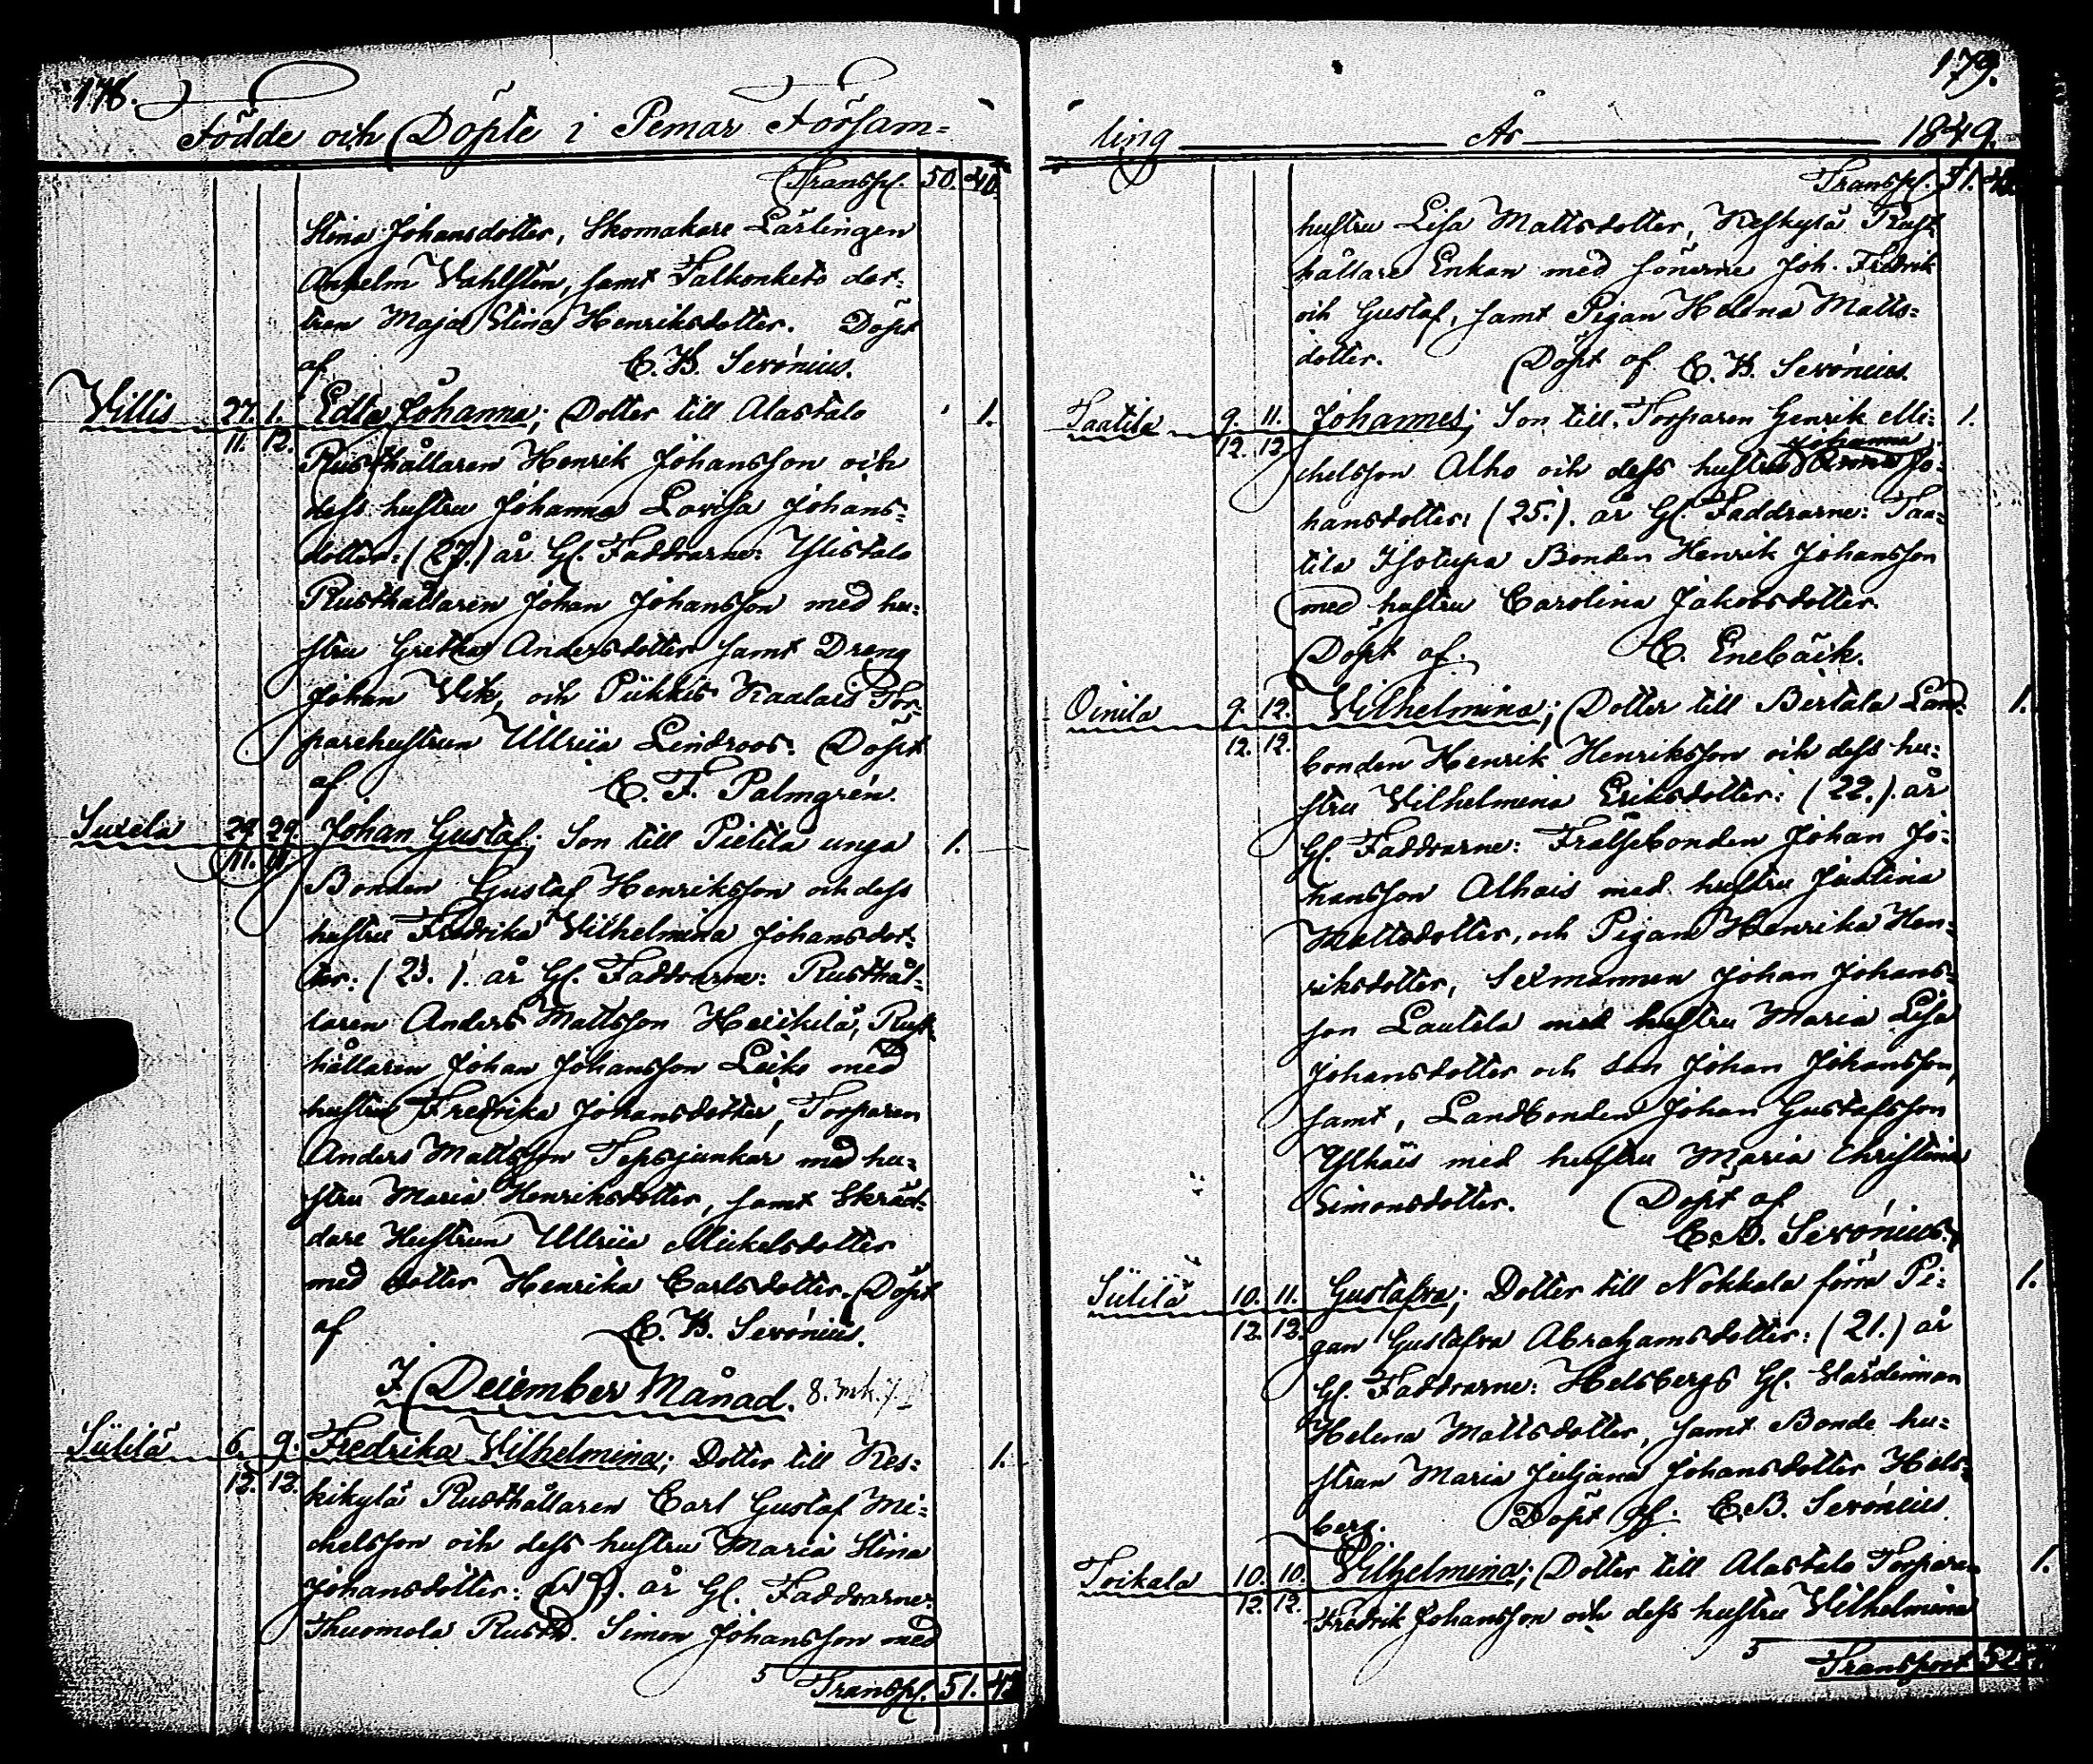 178.
Födde och Döpte i Pemar Försam=
Transp. 50. 40.
Stina Johansdotter, Skomakare Lärlingen
Anshelm Vahlstén, samt Talkonketo dot=
tren Maja Stina Henriksdotter. Döpt
af C. B. Serónius.
Villis 27. 1. Edla Johanna; Dotter till Alastalo 1.
11. 12. Rusthållaren Henrik Johansson och
dess hustru Johanna Lovisa Johans=
dotter: (27.) år Gl. Faddrarne: Ylistalo
Rusthållaren Johan Johansson med hu=
stru Gretha Andersdotter samt Dreng
Johan Vik, och Pükkis Kaalais Tor=
parehustrun Ullrica Lindroos. Döpt
af C. F. Palmgrén.
Suxela 29. 29. Johan Gustaf; Son till Pietilä unga 1.
11. 11. Bonden Gustaf Henriksson och dess
hustru Fredrika Vilhelmina Johansdot=
ter: (23.). år Gl. Faddrarne: Rusthål=
laren Anders Mattsson Heickilä, Rust=
hållaren Johan Johansson Leike med
hustru Fredrika Johansdotter, Torparen
Anders Mattsson Tepsjunkar med hu=
stru Maria Henriksdotter, samt Skräd=
dare Hustrun Ullrica Mickelsdotter
med dotter Henrika Carlsdotter. Döpt
af C. B. Serónius.
I December Månad. 8. mk.
Sülilä 6. 9. Fredrika Vilhelmina; Dotter till Kes= 1.
12. 12. kikylä Rusthållaren Carl Gustaf Mi=
chelsson och dess hustru Maria Stina
Johansdotter: år Gl. Faddrarne:
Thuomola Rusth. Simon Johansson med
5 Transp. 51. 42
179.
ling År 1849.
Transp. 51. 42.
hustru Lisa Mattsdotter, Keskylä Rust=
hållare Enkan med sönerne Joh. Fredrik
och Gustaf, samt Pigan Helena Matts=
dotter. Döpt af C. B. Serónius.
Taatila 9. 11. Johannes; Son till Torparen Henrik Mi= 1.
12. 12. chelsson Alho och dess hustru Johanna Jo=
hansdotter: (25.). år Gl. Faddrarne: Taa=
tila Isotupa Bonden Henrik Johansson
med hustru Carolina Jakobsdotter.
Döpt af. C. Enebäck.
Oinila 9. 12. Vilhelmina; Dotter till Bertala Land= 1.
12. 12. bonden Henrik Henriksson och dess hu=
stru Vilhelmina Eriksdotter: (22.). år
Gl. Faddrarne: Frälsebonden Johan Jo=
hansson Alhais med hustru Justina
Mattsdotter, och Pigan Henrika Hen=
riksdotter, Sexmannen Johan Johans=
son Lautela med hustru Maria Lisa
Johansdotter och Son Johan Johansson,
samt, Landbonden Johan Gustafsson
Ylhäis med hustru Maria Christina
Simonsdotter. Döpt af
C. B. Serónius.
Sülilä 10. 11. Gustafva; Dotter till Nokkala förra Pi= 1.
12. 12. gan Gustafva Abrahamsdotter: (21.) år
Gl. Faddrarne: Helsbergs Gl. Värdinnan
Helena Mattsdotter, samt Bonde hu=
strun Maria Juljana Johansdotter Hels=
berg. Döpt af. C. B. Serónius
Toikala 10. 10. Vilhelmina; Dotter till Alastalo Torparen 1.
12. 12. Fredrik Johansson och dess hustru Vilhelmina
5 Transport 52.